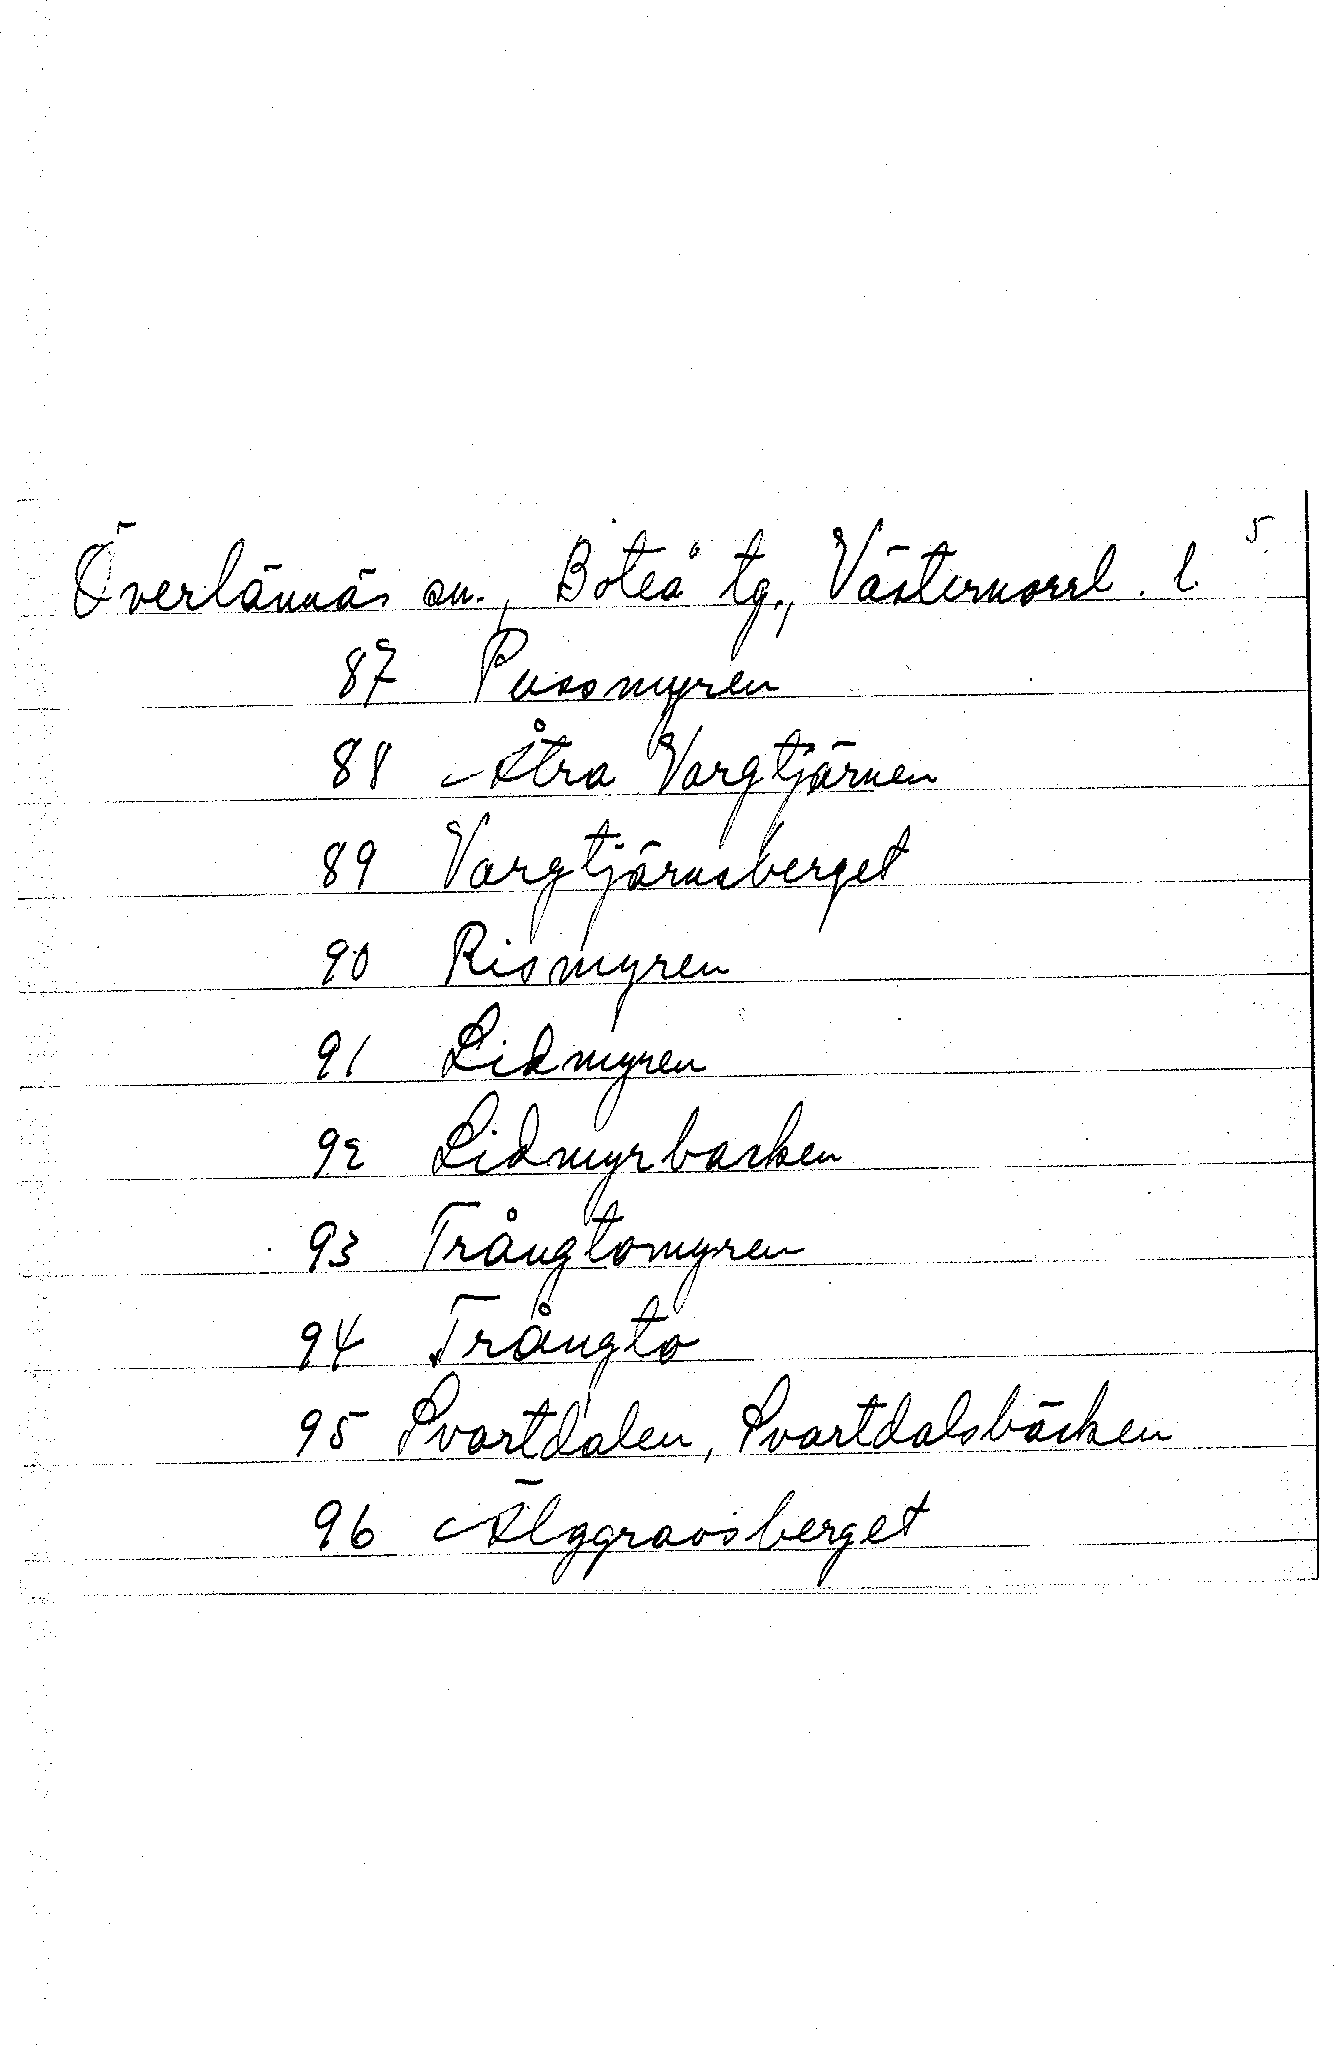 5.
Överlännäs sn., Boteå tg., Västernorrl. l.
87 Pussmyren
88 Åtra Vargtjärnen
89 Vargtjärnsberget
90 Rismyren
91 Lidmyren
92 Lidmyrbacken
93 Trångtomyren
94 Trångto
95 Svartdalen, Svartdalsbäcken
96 Älggravsberget